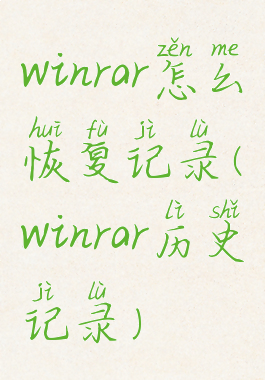 zěn me
winrar怎么
huī fù jì lù
恢复记录(
lì shǐ
winrar历史
jì lù
记录)